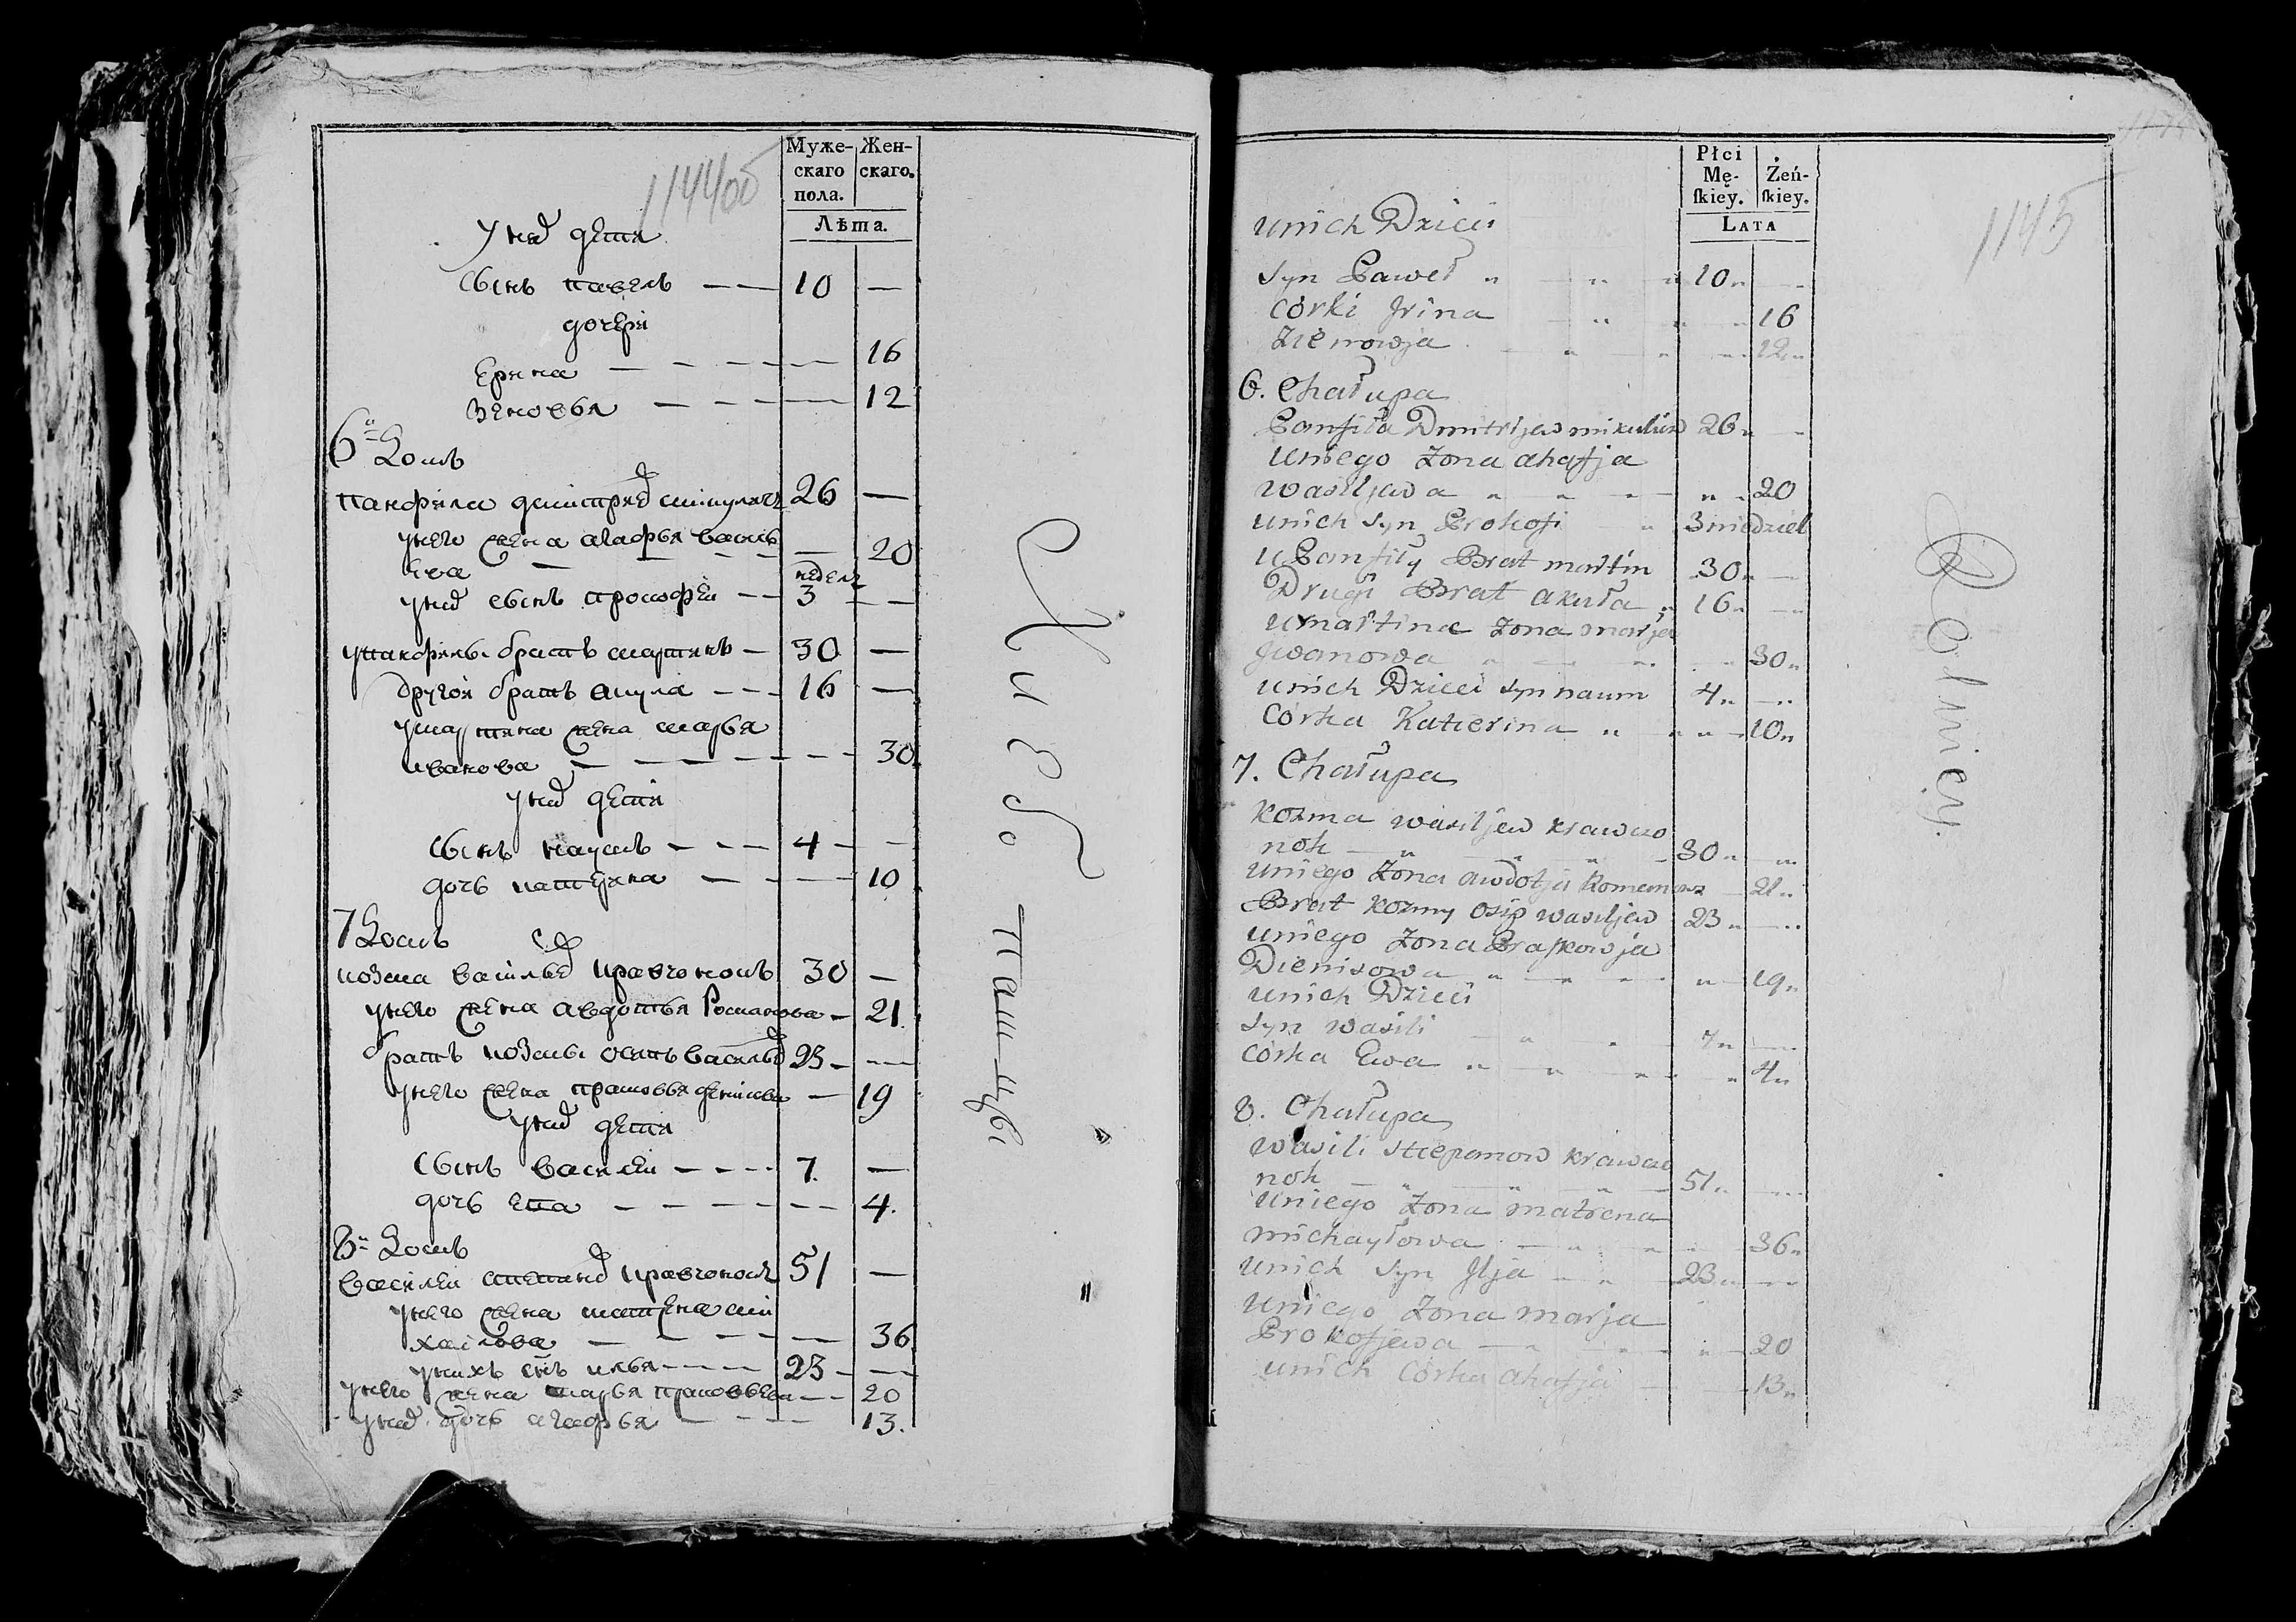 1144об
Муже-
скаго
пола.
Жен-
скаго.
Лѣта.
У них дети
Сынъ павелъ — — 10 —
дочери
Ерина — — — — 16
Зеновья — — — — 12
6й Домъ
панфила дмитрие микулич 26 —
у него жена агафья василь
ева — — — — 20
недели
у них сынъ прокофеи — — 3 — —
у панфилы братъ мартинъ — 30 —
другои братъ акула — — — 16 —
у мартина жена марья
иванова — — — — — — 30.
у них дети
Сынъ наумъ — — — 4 — —
дочь катерина — — — — 10
7 Домъ
козма василье кравчонокъ 30 —
у него жена авдотья Романова — 21.
братъ козмы осипъ василье 23 — —
у него жена прасковья денисова — 19
у них дети
Сынъ василеи — — — — 7. —
дочь ева — — — — — — 4.
8й Домъ
василеи степано кравчонок 51 —
у него жена матрена ми
хаилова — — — — — 36
у нихъ снъ илья — — — — 23 — —
у него жена марья прокофьева — — 20
у них дочь агафья — — — — 13.
Хибо
тинцы
1145
Płci
Mę-
ſkiey.
Żeń-
ſkiey.
LATA
unich Dzieci
Syn Paweł 10
Córki Jrina 16
Zienowja 12
6. Chałupa
Panfiła Dmitrijew mikulicz 26
Uniego Zona ahafja
wasiljewa 20
unich Syn Prokofi 3 niedziel
u Panfiły Brat martin 30
Drugi Brat akuła 16
u martina Zona marja
Jwanowa 30
unich Dzieci Syn naum 4
Córka Katierina 10
7. Chałupa
Kozma wasiljew krawczo
nok 30
uniego Zona awdotja Romanowa 21
Brat Kozmy Osip wasiljew 23
uniego Zona Praſkowja
Dienisowa 19
unich Dzieci
Syn wasili 7
Córka Ewa 4
8. Chałupa
wasili Stiepanow krawczo
nok 51
uniego Zona matrena
michayłowa 36
unich Syn Jlja 23
uniego Zona marja
Prokofjewa 20
unich Córka ahafja 13